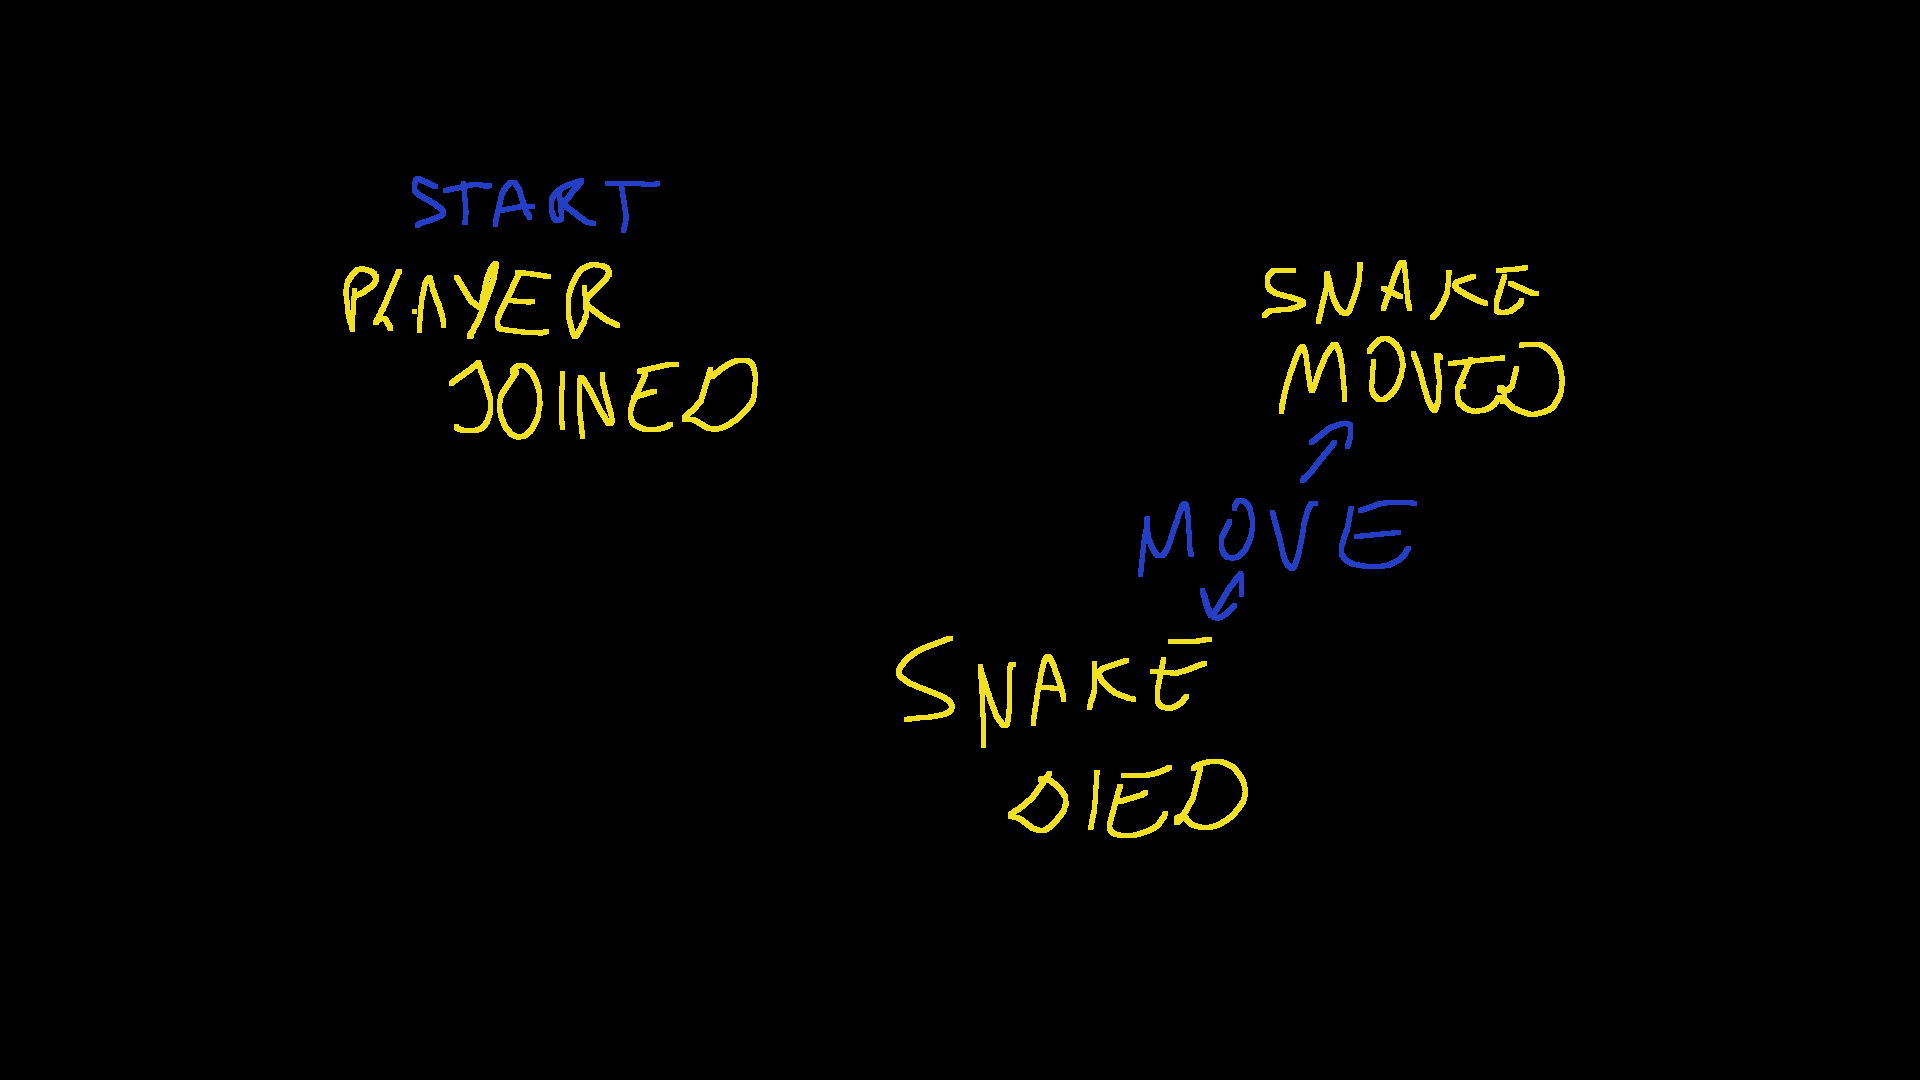 START
PLAYER
JOINED
SNAKE
MOVED
MOVE
SNAKE
DIED